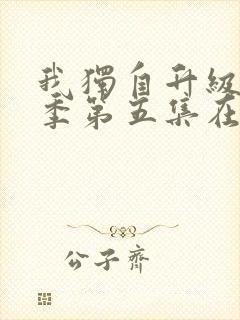 我獨自升級
季第五集在
公子齊